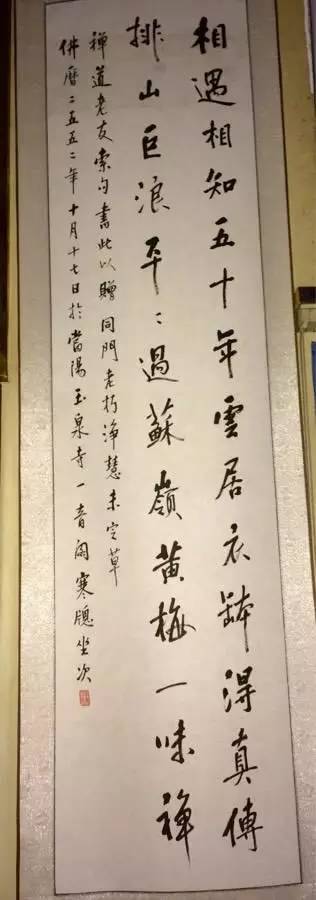 相遇相知五十年雲居衣缽得真傳
排山巨浪平〻過蘇嶺黃梅一味禪
禪道老友索句書此以贈同門老朽淨慧未定草
佛曆二五五二年十月十七日於當陽玉泉寺一音閣寒牕坐次